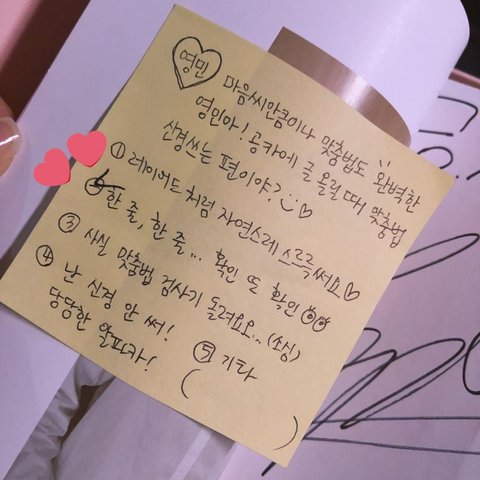 영민
마음씨만큼이나 맞춤법도 완벽한
영민아! 공카에 글 올릴 때 맞춤법
신경쓰는 편이야?
① 레이어드 처럼 자연스레 스르륵 써요
② 한 줄, 한 줄... 확인 또 확인
③ 사실 맞춤법 검사기 돌려요.. (소심)
④ 난 신경 안 써!
당당한 알파카!
⑤ 기타
( )